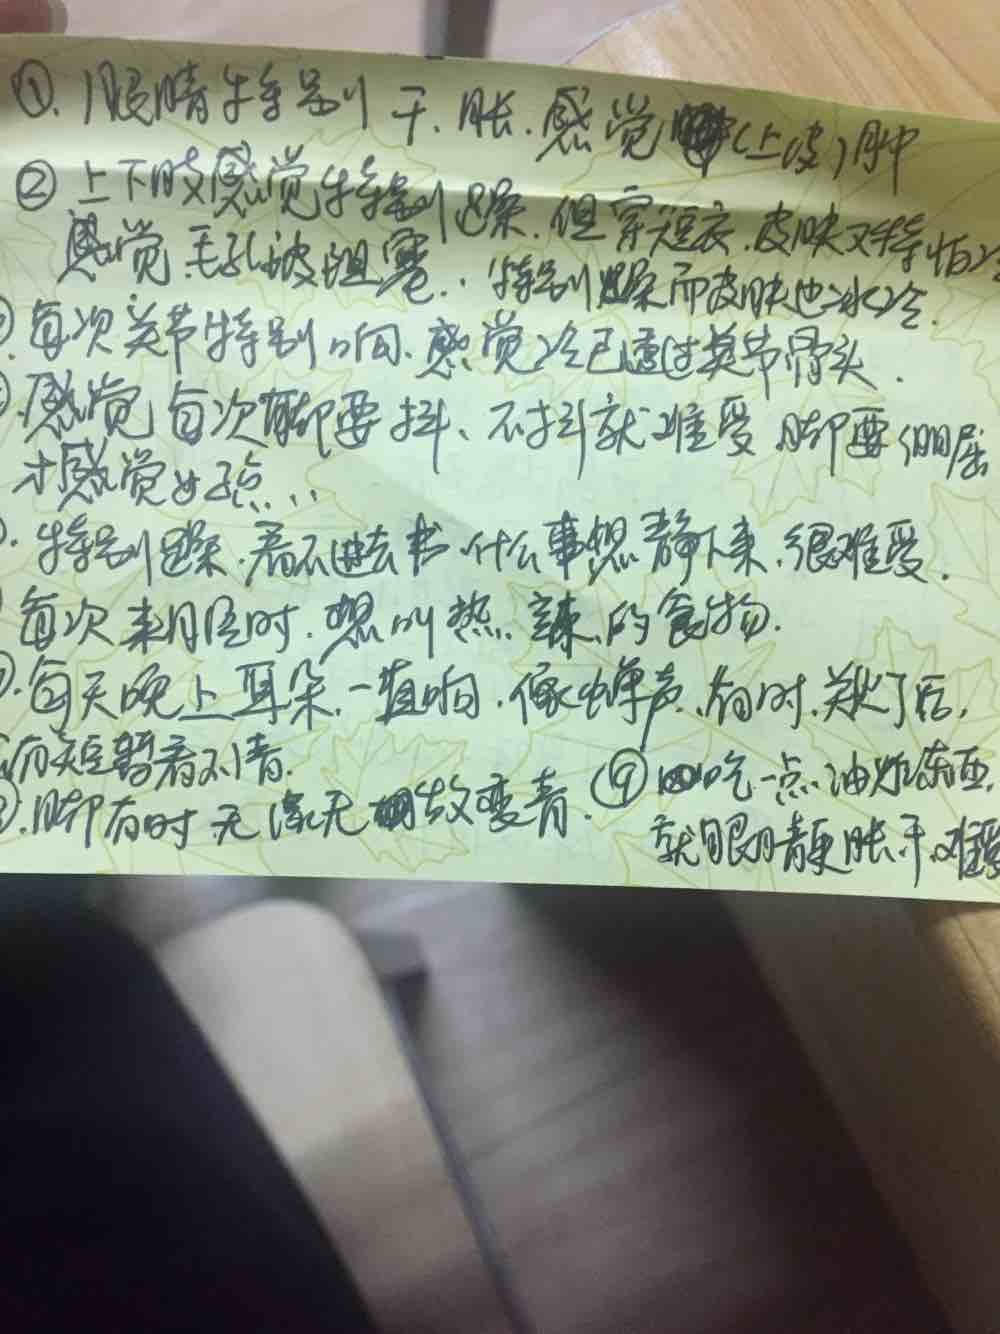 ①.眼睛特别干、胀.感觉(上皮)肿
②上下肢感觉特别躁.但穿短衣.皮肤又特怕冷
感觉毛孔被阻塞.特别躁而皮肤也冰冷.
.每次关节特别响.感觉冷已透过关节骨头.
感觉每次脚要抖、不抖就难受.脚要屈
才感觉好点..
.特别躁.看不进去书.什么事想静下来.很难受.
每次来月经时.想叫热.辣.的食物.
.每天晚上耳朵.一直响.像蝉声.有时.关灯后,
有短暂看不清.
.脚有时无缘无故变青. ⑨吃一点油炸东西,
就眼睛更胀.干.难受